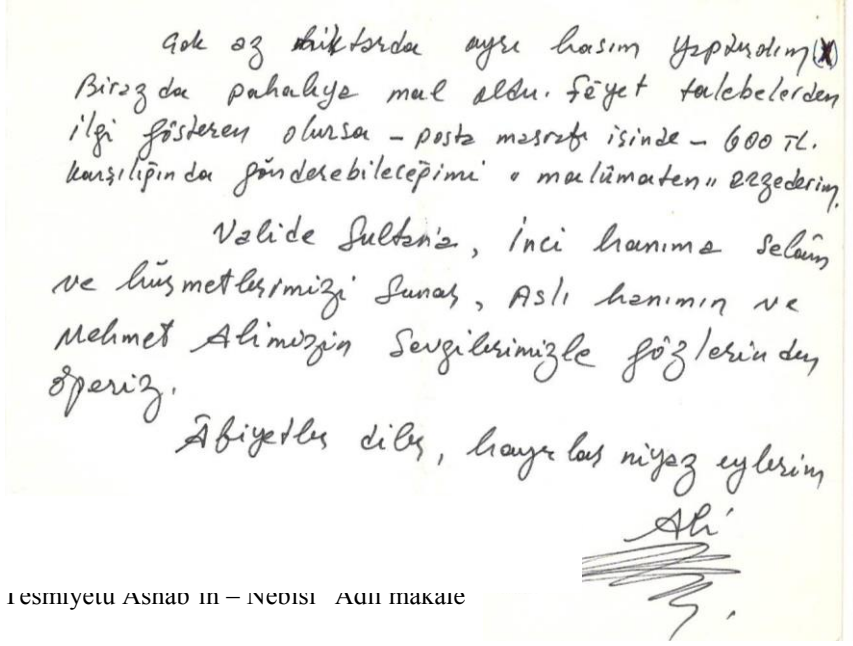 Çok az miktarda ayrı basım yaptırdım (X)
Biraz da pahalıya mal oldu. Şâyet talebelerden
ilgi gösteren olursa – posta masrafı içinde – 600 TL.
karşılığında gönderebileceğimi "malûmaten" arzederim.
Valide Sultan'a, İnci hanıma selâm
ve hürmetlerimizi sunar, Aslı hanımın ve
Mehmet Alimizin sevgilerimizle gözlerinden
öperiz.
Âfiyetler diler, hayırlar niyaz eylerim
Ali
Tesmiyetü Ashab'in – Nebisi" Adlı makale